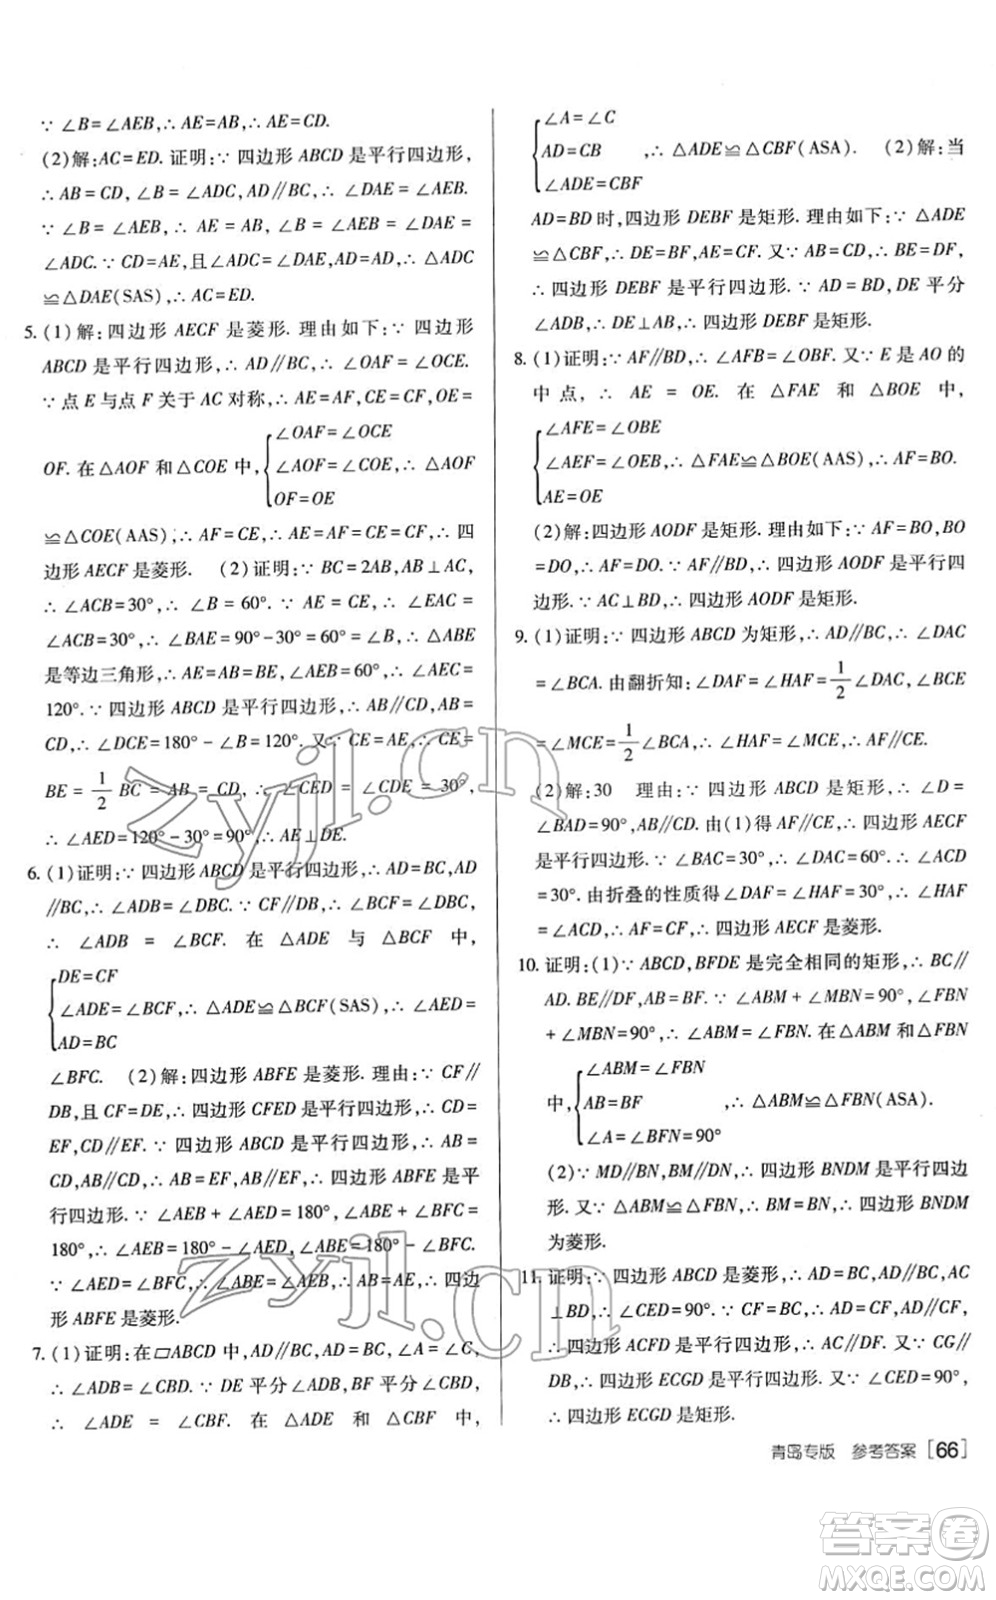 ∵ ∠B=∠AEB,∴ AE=AB,∴ AE=CD.
(2)解:AC=ED. 证明:∵ 四边形 ABCD 是平行四边形,
∴ AB=CD, ∠B=∠ADC, AD∥BC, ∴ ∠DAE=∠AEB.
∵ ∠B=∠AEB, ∴ AB=AE, ∴ ∠AEB=∠DAE=
∠ADC. ∵ CD=AE,且∠ADC=∠DAE,AD=AD,∴ △ADC
≌△DAE(SAS),∴ AC=ED.
5. (1)解:四边形 AECF 是菱形. 理由如下:∵ 四边形
ABCD 是平行四边形,∴ AD∥BC,∴ ∠OAF=∠OCE.
∵点 E 与点 F 关于 AC 对称,∴ AE=AF,CE=CF,OE=
OF. 在△AOF 和△COE 中,{∠OAF=∠OCE
∠AOF=∠COE,∴ △AOF
OF=OE
≌△COE(AAS),∴ AF=CE,∴ AE=AF=CE=CF,∴ 四
边形 AECF 是菱形. (2)证明:∵ BC=2AB,AB⊥AC,
∴ ∠ACB=30°,∴ ∠B=60°. ∵ AE=CE, ∴ ∠EAC=
∠ACB=30°,∴ ∠BAE=90°-30°=60°=∠B,∴ △ABE
是等边三角形,∴ AE=AB=BE,∠AEB=60°,∴ ∠AEC=
120°. ∵ 四边形 ABCD 是平行四边形,∴ AB∥CD,AB=
CD,∴ ∠DCE=180°-∠B=120°. 又∵ CE=AE,∴ CE=
BE=1/2 BC=AB=CD, ∴ ∠CED=∠CDE=30°,
∴ ∠AED=120°-30°=90°,∴ AE⊥DE.
6. (1)证明:∵ 四边形 ABCD 是平行四边形,∴ AD=BC,AD
∥BC,∴ ∠ADB=∠DBC. ∵ CF∥DB,∴ ∠BCF=∠DBC,
∴ ∠ADB=∠BCF. 在 △ADE 与 △BCF 中,
{DE=CF
∠ADE=∠BCF,∴ △ADE≌△BCF(SAS),∴ ∠AED=
AD=BC
∠BFC. (2)解:四边形 ABFE 是菱形. 理由:∵ CF∥
DB,且 CF=DE,∴ 四边形 CFED 是平行四边形,∴ CD=
EF,CD∥EF. ∵ 四边形 ABCD 是平行四边形,∴ AB=
CD,AB∥CD,∴ AB=EF,AB∥EF,∴ 四边形 ABFE 是平
行四边形. ∵ ∠AEB+∠AED=180°,∠ABE+∠BFC=
180°,∴ ∠AEB=180°-∠AED,∠ABE=180°-∠BFC.
∵ ∠AED=∠BFC,∴ ∠ABE=∠AEB,∴ AB=AE,∴ 四边
形 ABFE 是菱形.
7. (1)证明:在▱ABCD 中,AD∥BC,AD=BC,∠A=∠C,
∴ ∠ADB=∠CBD. ∵ DE 平分∠ADB,BF 平分∠CBD,
∴ ∠ADE=∠CBF. 在 △ADE 和 △CBF 中,
{∠A=∠C
AD=CB ,∴ △ADE≌△CBF(ASA). (2)解:当
∠ADE=CBF
AD=BD 时,四边形 DEBF 是矩形. 理由如下:∵ △ADE
≌△CBF,∴ DE=BF,AE=CF. 又∵ AB=CD,∴ BE=DF,
∴ 四边形 DEBF 是平行四边形. ∵ AD=BD,DE 平分
∠ADB,∴ DE⊥AB,∴ 四边形 DEBF 是矩形.
8. (1)证明:∵ AF∥BD,∴ ∠AFB=∠OBF. 又∵ E 是 AO 的
中点,∴ AE=OE. 在 △FAE 和 △BOE 中,
{∠AFE=∠OBE
∠AEF=∠OEB,∴ △FAE≌△BOE(AAS),∴ AF=BO.
AE=OE
(2)解:四边形 AODF 是矩形. 理由如下:∵ AF=BO,BO
=DO,∴ AF=DO. ∵ AF∥BD,∴ 四边形 AODF 是平行四
边形. ∵ AC⊥BD,∴ 四边形 AODF 是矩形.
9. (1)证明:∵ 四边形 ABCD 为矩形,∴ AD∥BC,∴ ∠DAC
=∠BCA. 由翻折知:∠DAF=∠HAF=1/2∠DAC,∠BCE
=∠MCE=1/2∠BCA,∴ ∠HAF=∠MCE,∴ AF∥CE.
(2)解:30 理由:∵ 四边形 ABCD 是矩形,∴ ∠D=
∠BAD=90°,AB∥CD. 由(1)得 AF∥CE,∴ 四边形 AECF
是平行四边形. ∵ ∠BAC=30°,∴ ∠DAC=60°. ∴ ∠ACD
=30°. 由折叠的性质得∠DAF=∠HAF=30°,∴ ∠HAF
=∠ACD,∴ AF=CF,∴ 四边形 AECF 是菱形.
10. 证明:(1)∵ ABCD,BFDE 是完全相同的矩形,∴ BC∥
AD. BE∥DF,AB=BF. ∵ ∠ABM+∠MBN=90°,∠FBN
+∠MBN=90°,∴ ∠ABM=∠FBN. 在△ABM 和△FBN
中,{∠ABM=∠FBN
AB=BF ,∴ △ABM≌△FBN(ASA).
∠A=∠BFN=90°
(2)∵ MD∥BN,BM∥DN,∴ 四边形 BNDM 是平行四边
形. 又∵ △ABM≌△FBN,∴ BM=BN,∴ 四边形 BNDM
为菱形.
11. 证明:∵ 四边形 ABCD 是菱形,∴ AD=BC,AD∥BC,AC
⊥BD,∴ ∠CED=90°. ∵ CF=BC,∴ AD=CF,∴ 四边
形 ACFD 是平行四边形,∴ AC∥DF. 又∵ CG∥
DB,∴ 四边形 ECGD 是平行四边形. 又∵ ∠CED=90°,
∴ 四边形 ECGD 是矩形.
青岛专版 参考答案 [66]
zyjl.cn
zyjl.cn
答案圈
MXQE.COM